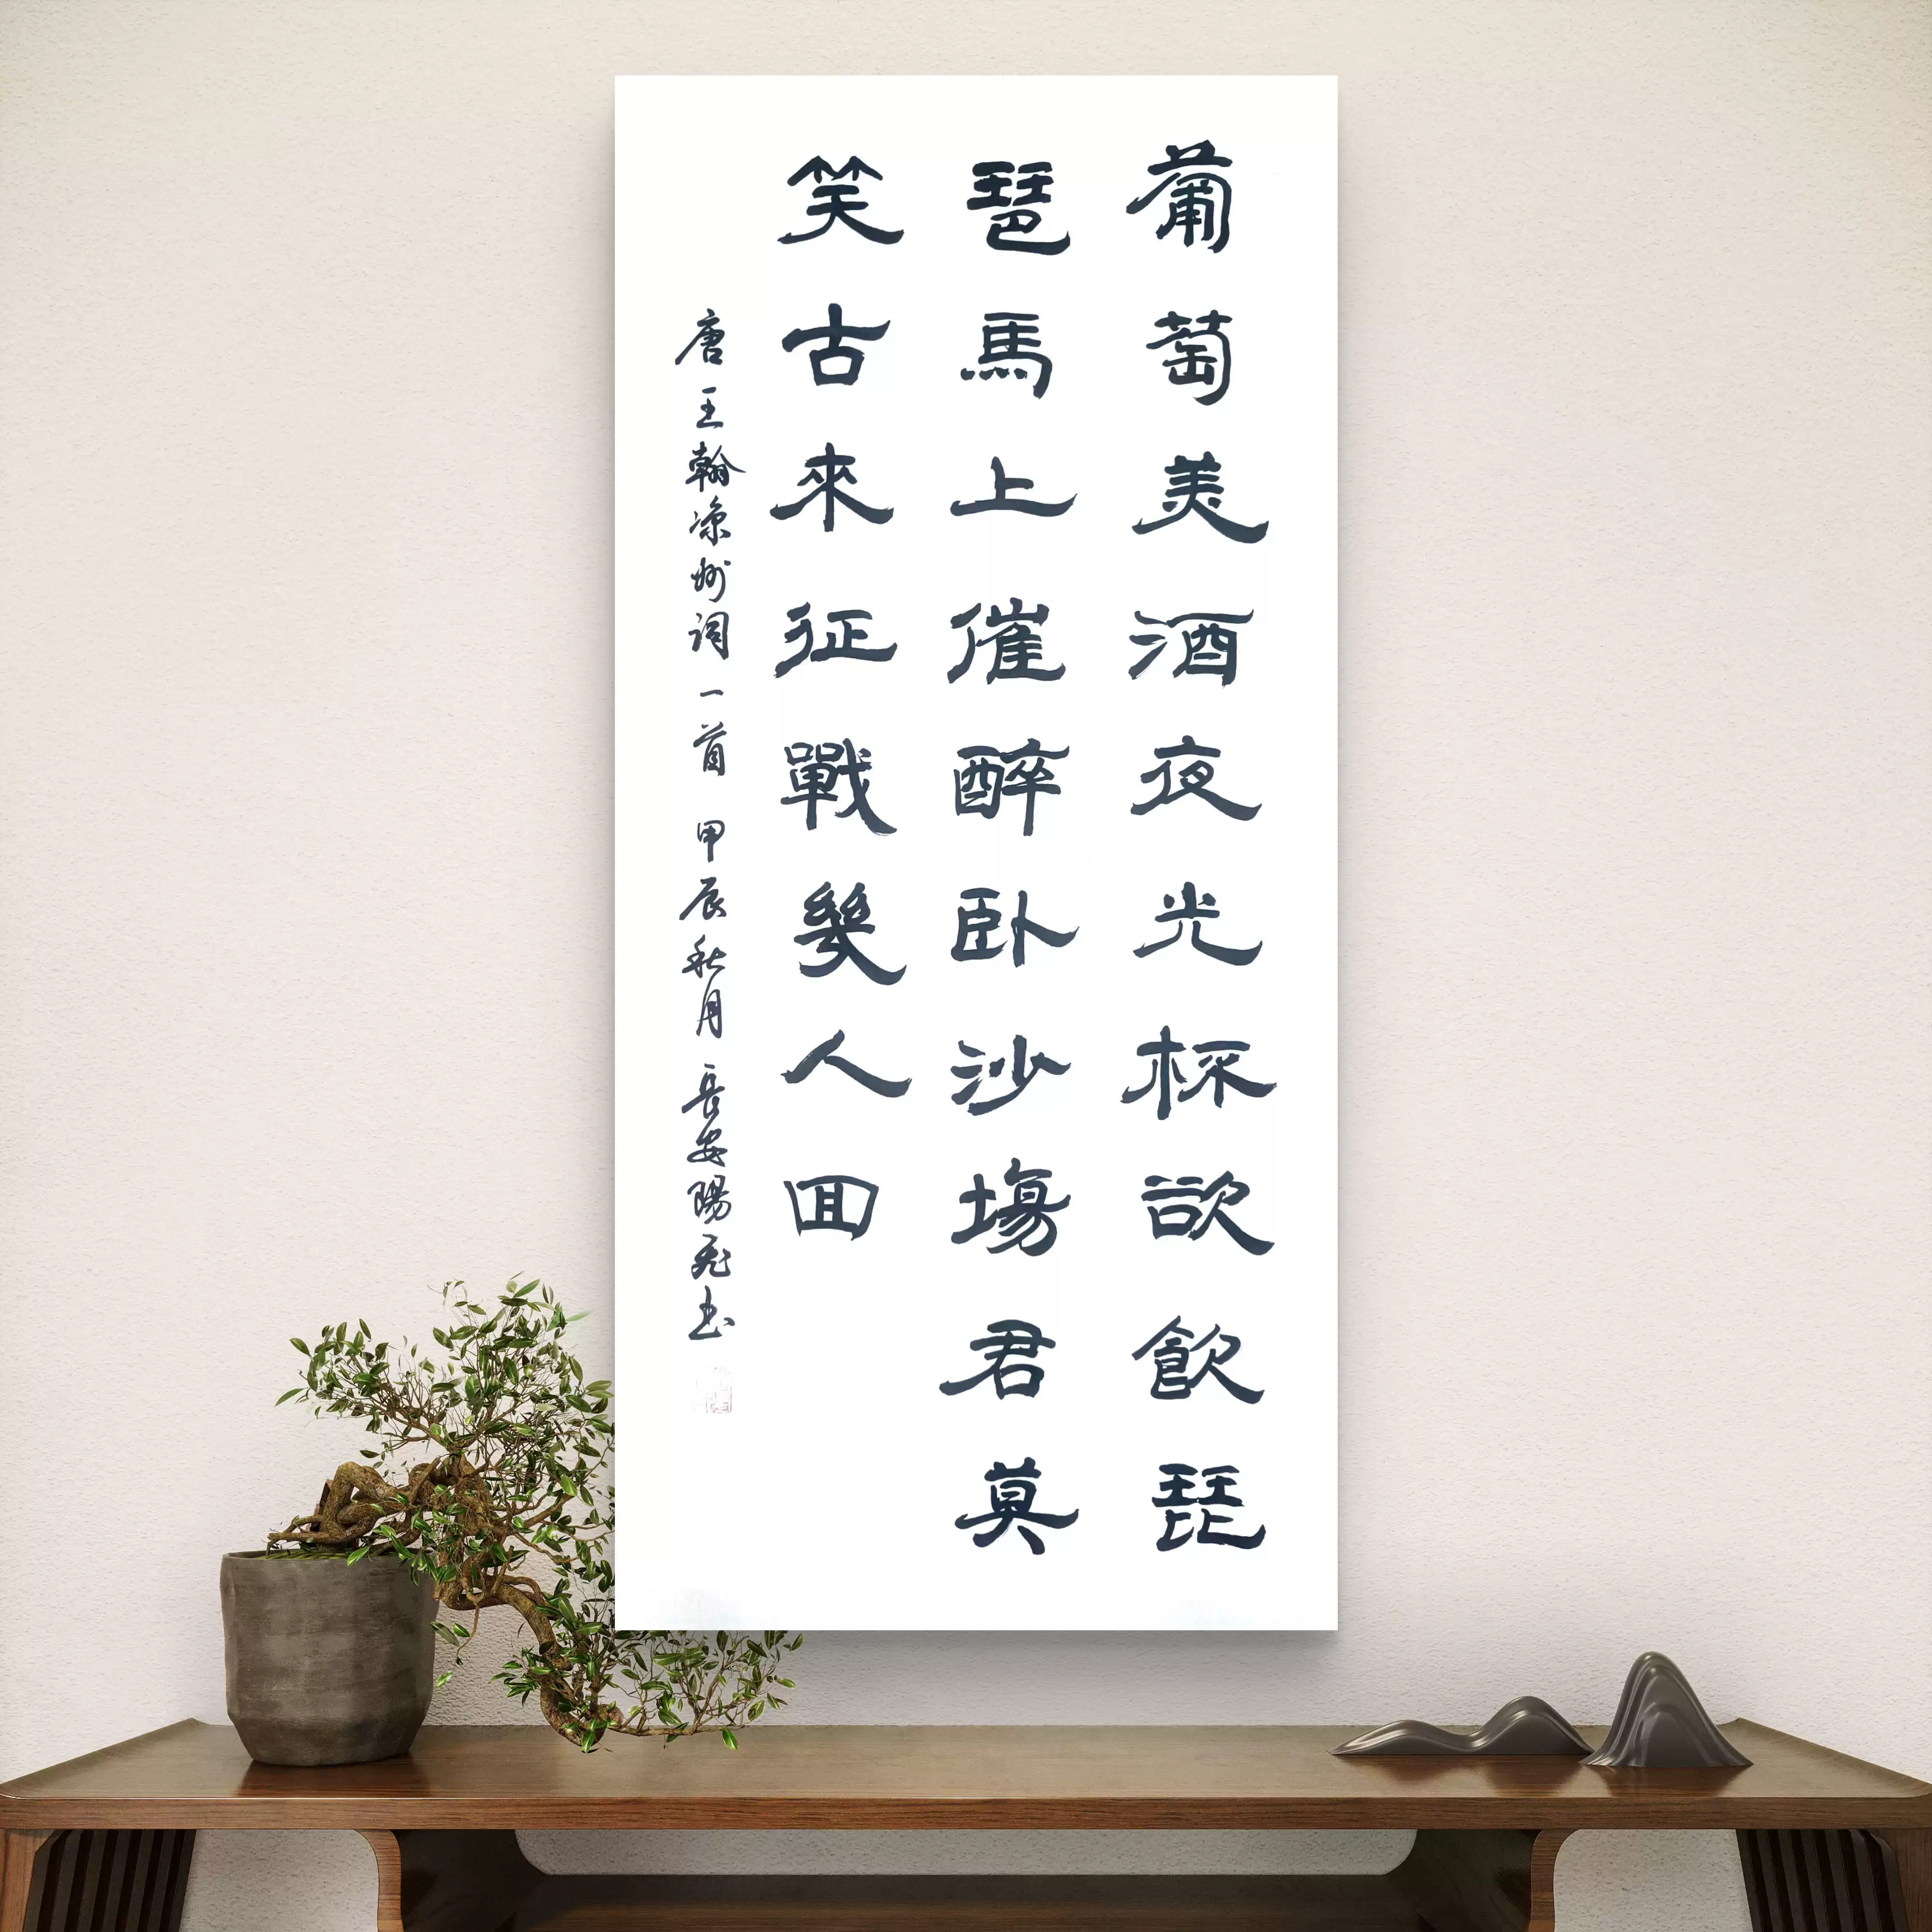 葡萄美酒夜光杯欲飲琵
琶馬上催醉卧沙塲君莫
笑古來征戰幾人囬
唐王翰凉州詞一首 甲辰秋月 長安陽書